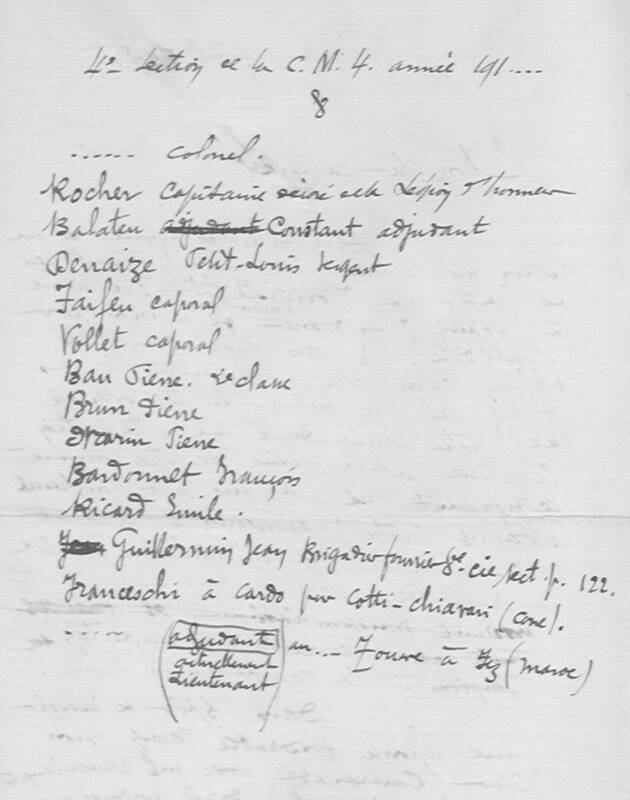 4e Section de la C. M. 4. année 191....
8
...... colonel.
Rocher Capitaine décoré de la Légion d'honneur
Balateu adjudant Constant adjudant
Denaize Petit-Louis sergent
Faifeu caporal
Vollet caporal
Bau Pierre. 2e classe
Brun Pierre
Marin Pierre
Bardonnet François
Ricard Emile.
Guillermin Jean Brigadier fourrier 8e cie sect. p. 122.
Franceschi à Cardo par Cotti-Chiavari (Corse).
..... (adjudant au... Zouave à Fez (Maroc)
actuellement
Lieutenant)